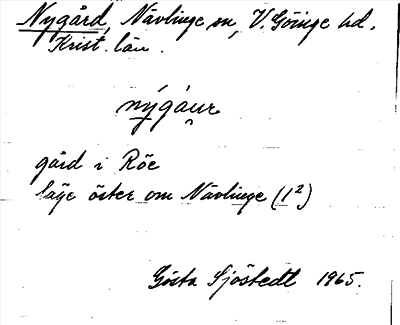 Nygård, Nävlinge sn, V. Göinge hd.
Krist. län.
nýgåu̯r
gård i Röe
läge öster om Nävlinge (1²)
Gösta Sjöstedt 1965.